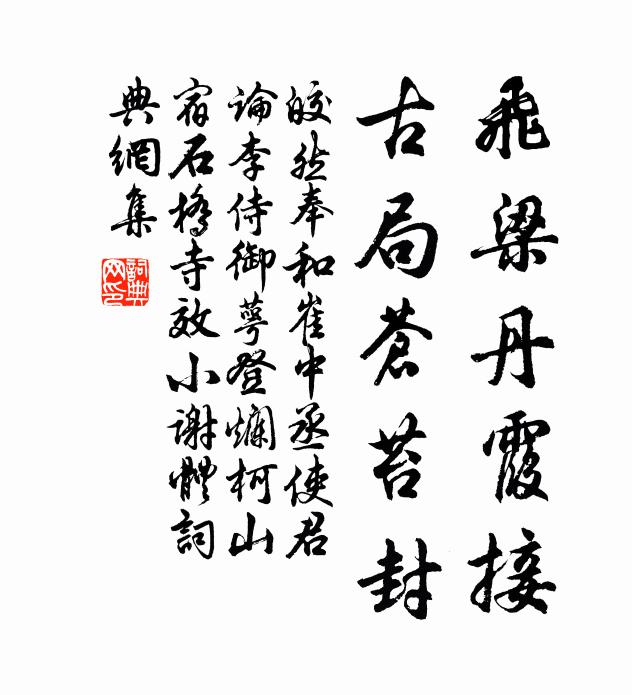 飛梁丹霞接
古局蒼苔封
皎然奉和崔中丞使君
論李侍御萼登爛柯山
宿石橋寺效小謝體詞
典網集
詞典
网印